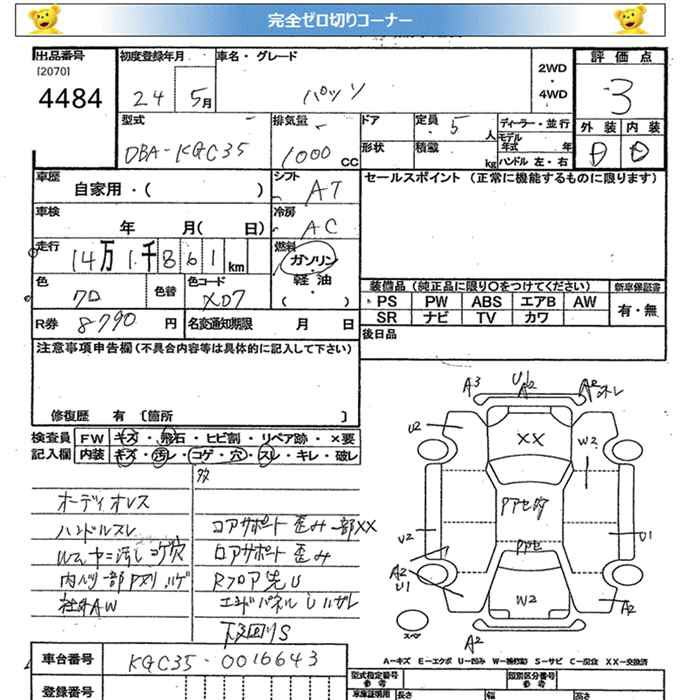 完全ゼロ切りコーナー
出品番号
[2070]
4484
初度登録年月
24 5月
車名・グレード
パッソ
2WD
・
4WD
評価点
3
外装 内装
D D
型式
DBA-KGC35
排気量
1000 CC
ドア
形状
定員 5 人
積載 kg
ディーラー・並行
モデル
年式 年
ハンドル 左・右
車歴
自家用・( )
シフト
AT
セールスポイント (正常に機能するものに限ります)
車検
年 月( 日)
冷房
AC
走行
14万1千861km
燃料
ガソリン
・
軽油
・
( )
色
クロ
色替
色コード
X07
装備品 (純正品に限り○をつけてください)
PS PW ABS エアB AW
SR ナビ TV カワ
新車保証書
有・無
R券 8790 円
名変通知期限 月 日
後日品
注意事項申告欄 (不具合内容等は具体的に記入して下さい)
修復歴 有 [箇所 ]
検査員
記入欄
FW キズ・飛石・ヒビ割・リペア跡・×要
内装 キズ・汚レ・コゲ・穴・スレ・キレ・破レ
オーディオレス
ハンドルスレ
社外AW
コアサポート歪み一部XX
ロアサポート歪み
下回りS
A3 U1 A2
U2 XX W2
U2 U1
A2 U1
W2 A2
A2
スペア
A-キズ E-エクボ U-凹み W-補修跡 S-サビ C-腐食 XX-交換済
車台番号
KGC35-0016643
登録番号
型式指定番号
参考
類別区分番号
参考
車庫証明用 長さ 幅 高さ